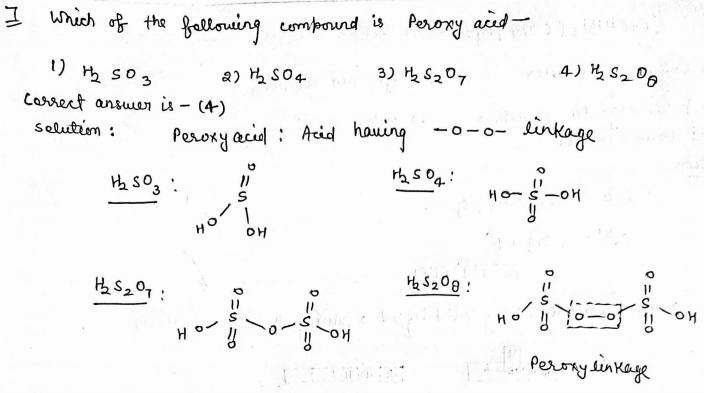 I Which of the following compound is Peroxy acid—
1) H2SO3 2) H2SO4 3) H2S2O7 4) H2S2O8
Correct answer is - (4)
solution : Peroxy acid : Acid having -O-O- linkage
H2SO3 : H2SO4 :
O O
|| ||
S HO-S-OH
HO OH ||
O
H2S2O7 : H2S2O8 :
O O O O
|| || || ||
HO S O S OH HO S O-O S OH
|| || || ||
O O O O
Peroxy linkage